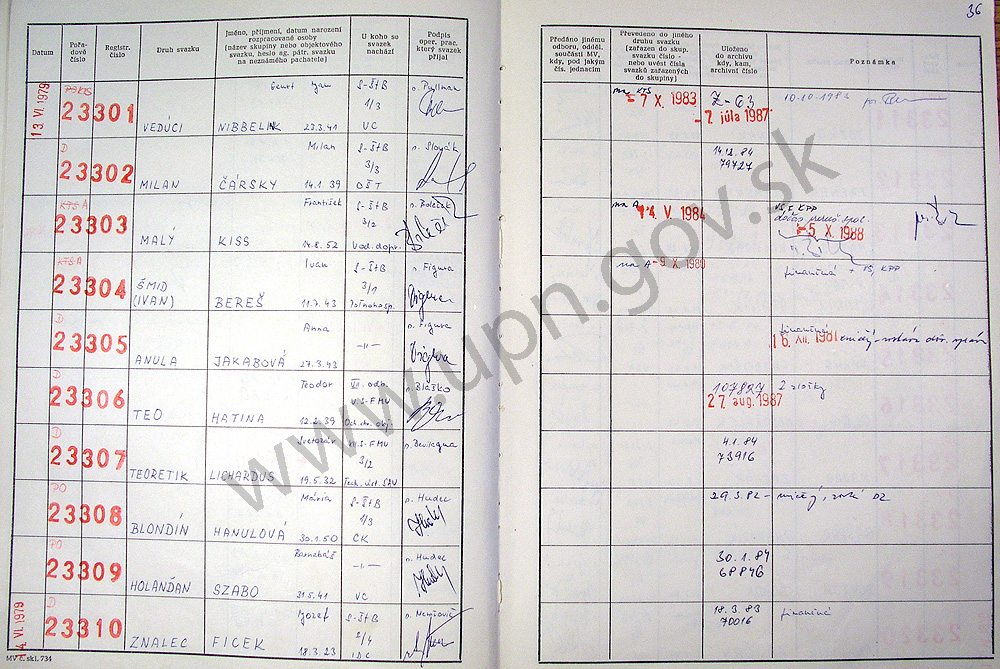 36
Datum
Pořadové číslo
Registr. číslo
Druh svazku
Jméno, příjmení, datum narození rozpracované osoby (název skupiny nebo objektového svazku, heslo ag. pátr. svazku na neznámého pachatele)
U koho se svazek nachází
Podpis oper. prac. který svazek přijal
Předáno jinému odboru, odděl. součásti MV, kdy, pod jakým čís. jednacím
Převedeno do jiného druhu svazku (zařazen do skup. svazku číslo - nebo uvést čísla svazků zařazených do skupiny)
Uloženo do archivu kdy, kam, archivní číslo
Poznámka
13. VI. 1979
23301
VEDÚCI NIBBELINK 23.3.41
S-ŠtB 1/3 VC
7 X. 1983
Z-63
7. júla 1987
10.10.1983
D
23302
MILAN ČÁRSKY Milan 14.1.39
S-ŠtB 3/3 OŠT
p. Slovák
14.12.84
79727
KTS A
23303
MALÝ KISS František 14.8.52
S-ŠtB 3/2 Vod. dopr.
na A
14. V. 1984
5 X. 1988
KTS A
23304
ŠMID (IVAN) BEREŠ Ivan 11.7.43
S-ŠtB 3/1
p. Figura
na A - 9 X. 1980
finančná + VŠ, KPP
D
23305
ANULA JAKABOVÁ Anna 27.3.43
-11-
p. Figura
finančná
16. XII. 1981
D
23306
TEO HATINA Teodor 12.2.39
VII. odb.
p. Blaško
107827
27 aug. 1987
2 zložky
D
23307
TEORETIK LICHARDUS Svetozár 19.5.32
3/2
p. Bevilaqua
4.1.84
73916
PO
23308
BLONDÍN HANULOVÁ Mária 30.1.50
S-ŠtB 1/3 ČK
p. Hudec
29.3.82
PO
23309
HOLANĎAN SZABO Barnabáš 31.5.41
-11- VC
p. Hudec
30.1.84
68846
14. VI. 1979
D
23310
ZNALEC FICEK Jozef 18.3.23
S-ŠtB 2/4
18.3.83
70016
finančné
MV č. skl. 734
www.upn.gov.sk